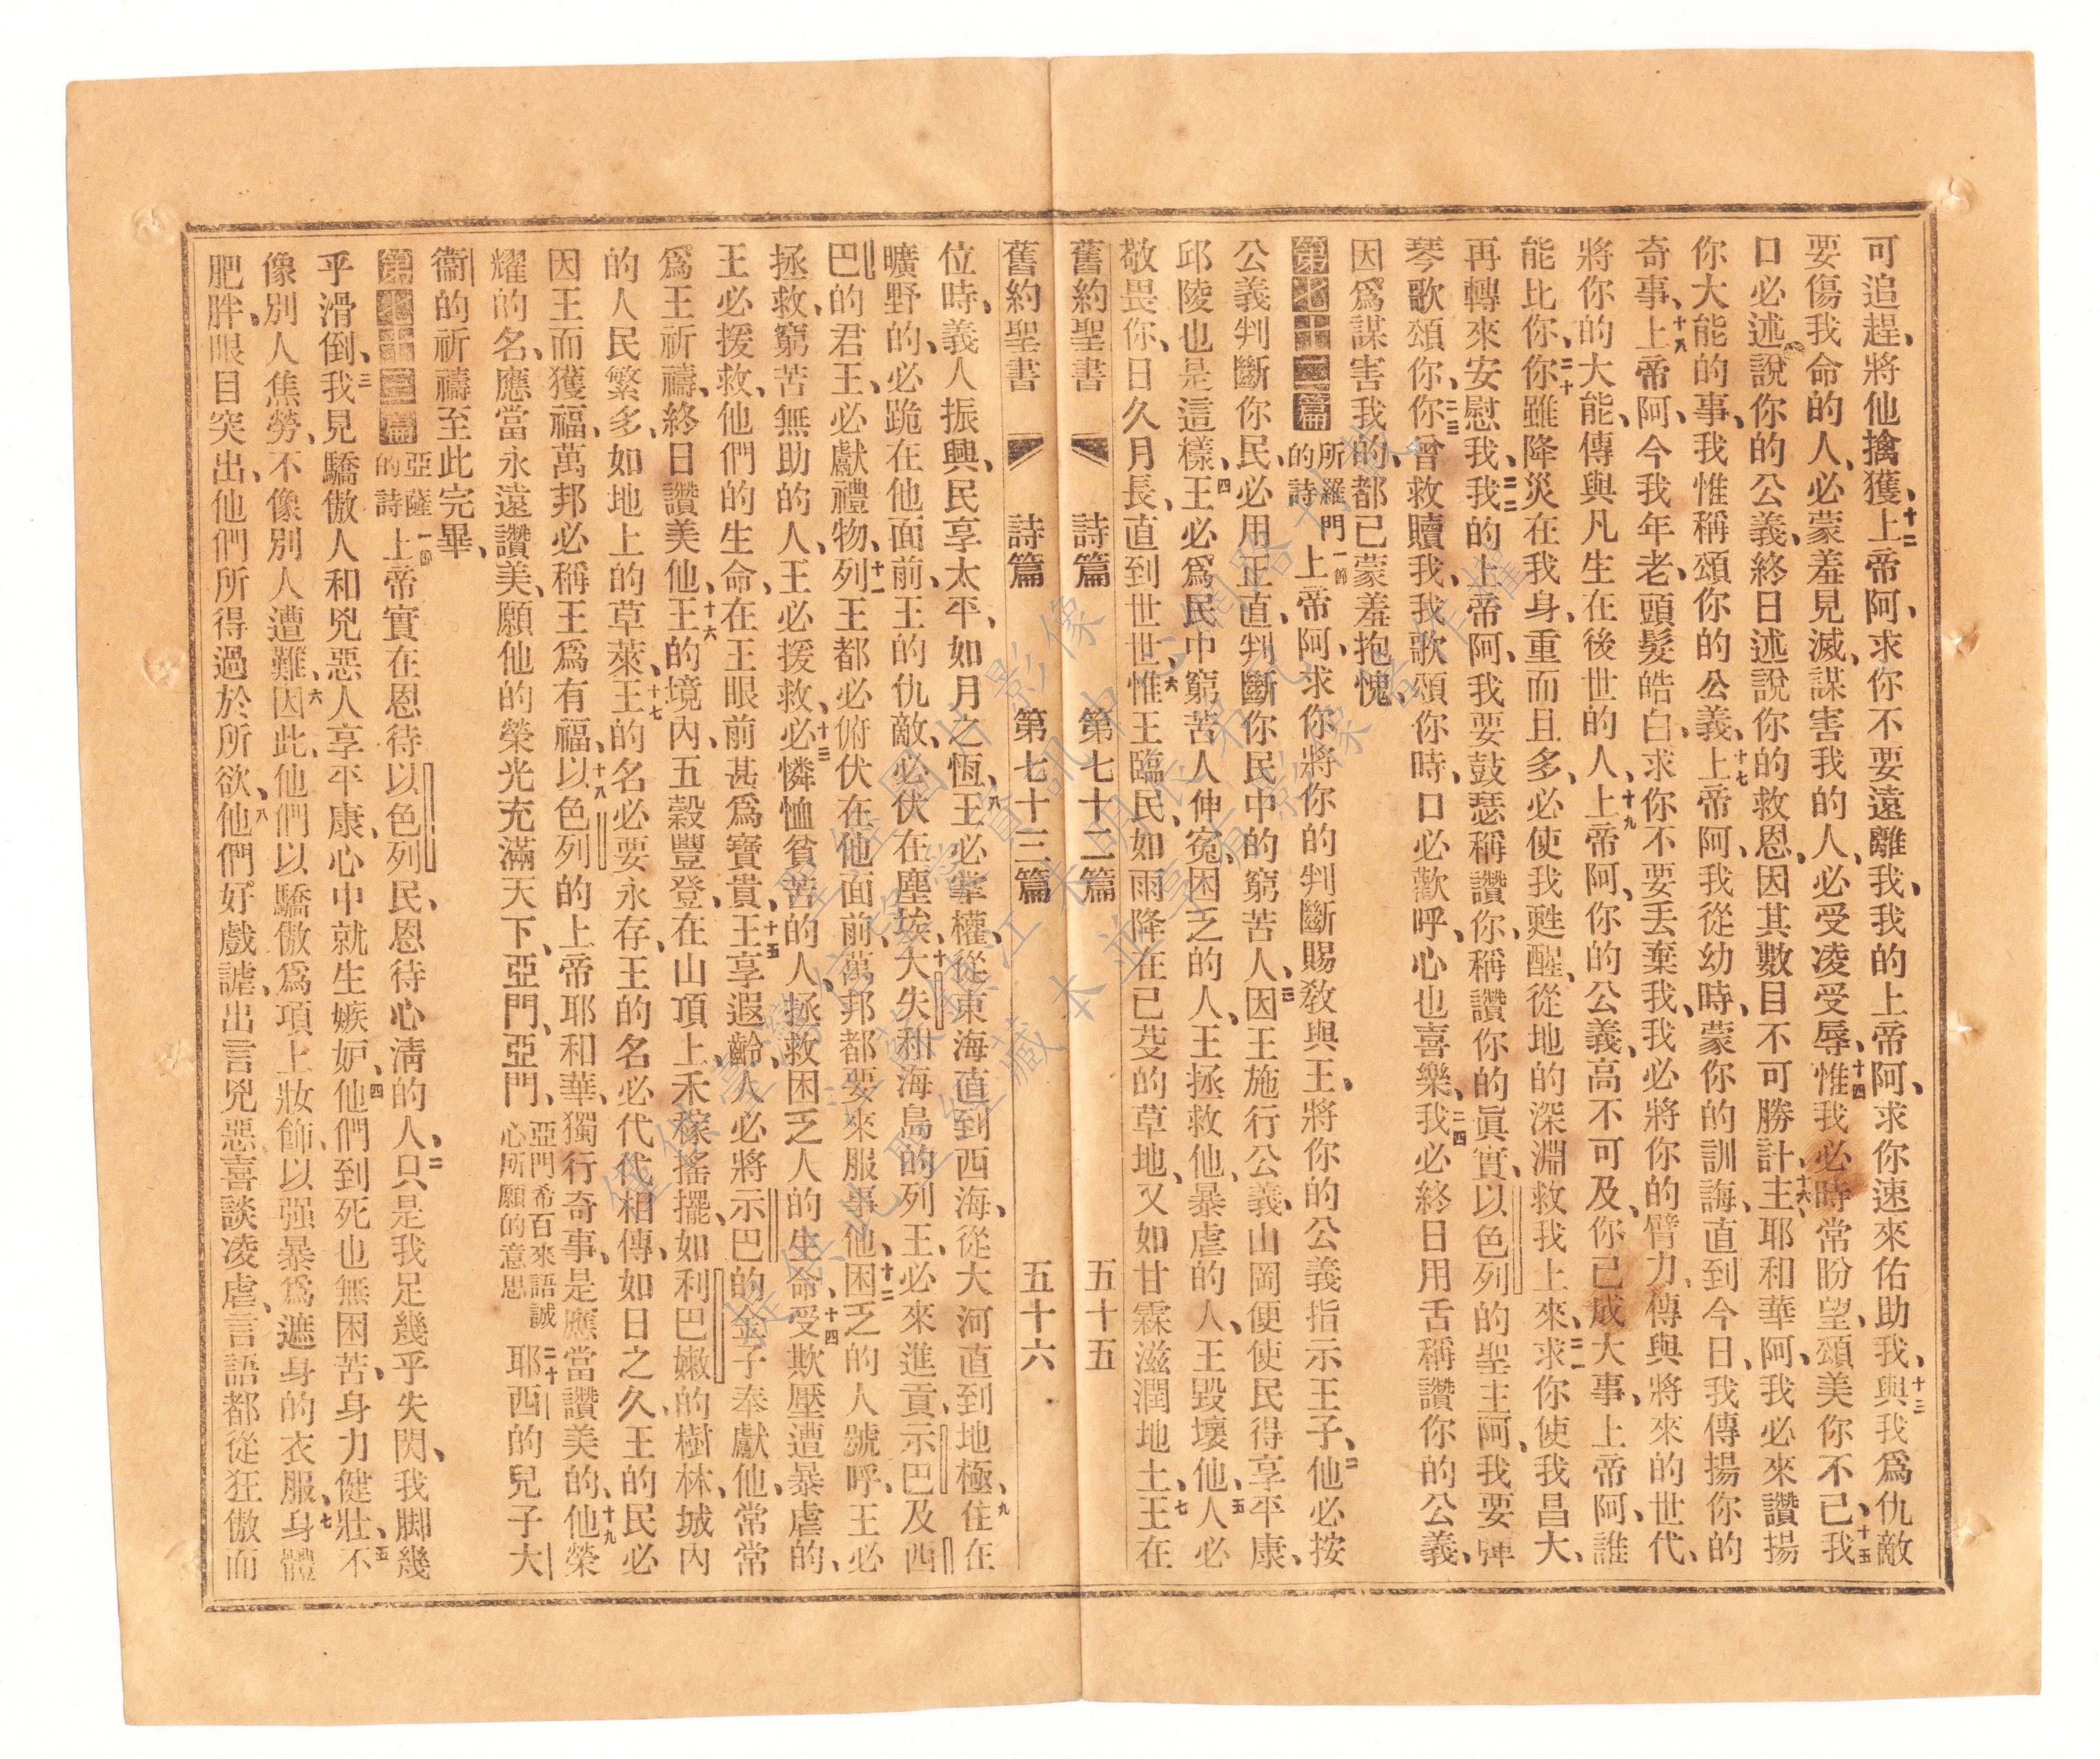 可追趕、將他擒獲、十二上帝阿、求你不要遠離我、我的上帝阿、求你速來佑助我、十三與我爲仇敵
要傷我命的人、必蒙羞見滅、謀害我的人、必受凌受辱、十四惟我必時常盼望、頌美你不已、十五我
口必述說你的公義、終日述說你的救恩、因其數目不可勝計、十六主耶和華阿、我必來讚揚
你大能的事、我惟稱頌你的公義、十七上帝阿、我從幼時、蒙你的訓誨、直到今日、我傳揚你的
奇事、十八上帝阿、今我年老、頭髮皓白、求你不要丟棄我、我必將你的臂力、傳與將來的世代、
將你的大能、傳與凡生在後世的人、十九上帝阿、你的公義、高不可及、你已成大事、上帝阿、誰
能比你、二十你雖降災在我身、重而且多、必使我甦醒、從地的深淵救我上來、二一求你使我昌大、
再轉來安慰我、二二我的上帝阿、我要鼓瑟稱讚你、稱讚你的眞實、以色列的聖主阿、我要彈
琴歌頌你、二三你曾救贖我、我歌頌你時、口必歡呼、心也喜樂、二四我必終日用舌稱讚你的公義、
因爲謀害我的、都已蒙羞抱愧、
第七十二篇 所羅門的詩 一節上帝阿、求你將你的判斷賜敎與王、將你的公義指示王子、二他必按
公義判斷你民、必用正直、判斷你民中的窮苦人、三因王施行公義、山岡便使民得享平康、
邱陵也是這樣、四王必爲民中窮苦人伸寃、困乏的人、王拯救他、暴虐的人、王毀壞他、五人必
敬畏你、日久月長、直到世世、六惟王臨民、如雨降在已芟的草地、又如甘霖滋潤地土、七王在
舊約聖書 詩篇 第七十二篇 五十五
舊約聖書 詩篇 第七十三篇 五十六
位時、義人振興、民享太平、如月之恆、八王必掌權、從東海直到西海、從大河直到地極、九住在
曠野的、必跪在他面前、王的仇敵、必伏在塵埃、十大失和海島的列王、必來進貢、示巴及西
巴的君王、必獻禮物、十一列王都必俯伏在他面前、萬邦都要來服事他、十二困乏的人號呼、王必
拯救、窮苦無助的人、王必援救、十三必憐恤貧苦的人、拯救困乏人的生命、十四受欺壓遭暴虐的、
王必援救、他們的生命、在王眼前甚爲寶貴、十五王享遐齡、人必將示巴的金子奉獻他、常常
爲王祈禱、終日讚美他、十六王的境內、五穀豐登、在山頂上、禾稼搖擺、如利巴嫩的樹林、城內
的人民繁多、如地上的草萊、十七王的名必要永存、王的名必代代相傳、如日之久、王的民必
因王而獲福、萬邦必稱王爲有福、十八以色列的上帝耶和華、獨行奇事、是應當讚美的、十九他榮
耀的名、應當永遠讚美、願他的榮光充滿天下、亞門、亞門、亞門希百來語誠心所願的意思 二十耶西的兒子大
衞的祈禱至此完畢、
第七十三篇 亞薩的詩 一節上帝實在恩待以色列民、恩待心淸的人、二只是我足幾乎失閃、我脚幾
乎滑倒、三我見驕傲人和兇惡人享平康、心中就生嫉妒、四他們到死也無困苦、身力健壯、五不
像別人焦勞、不像別人遭難、六因此、他們以驕傲爲項上妝飾、以强暴爲遮身的衣服、七身體
肥胖、眼目突出、他們所得過於所欲、八他們好戲謔、出言兇惡、喜談凌虐、言語都從狂傲而